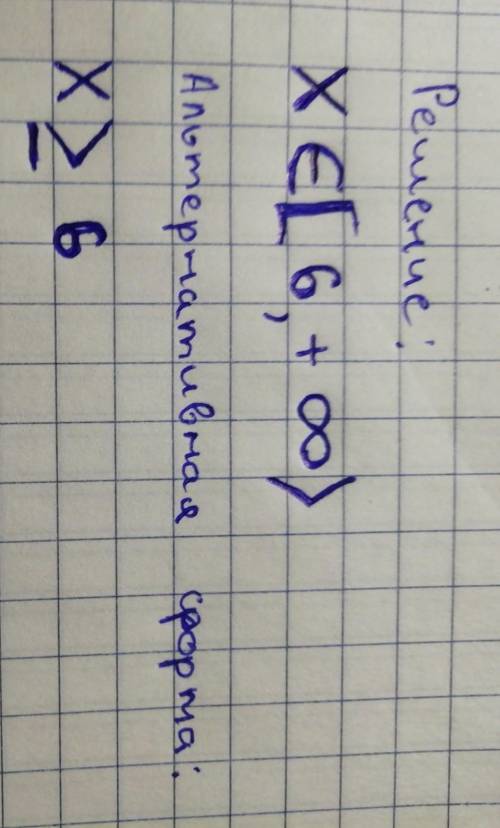 Решение:
x ∈ [6, + ∞⟩
Альтернативная форма:
x ≥ 6